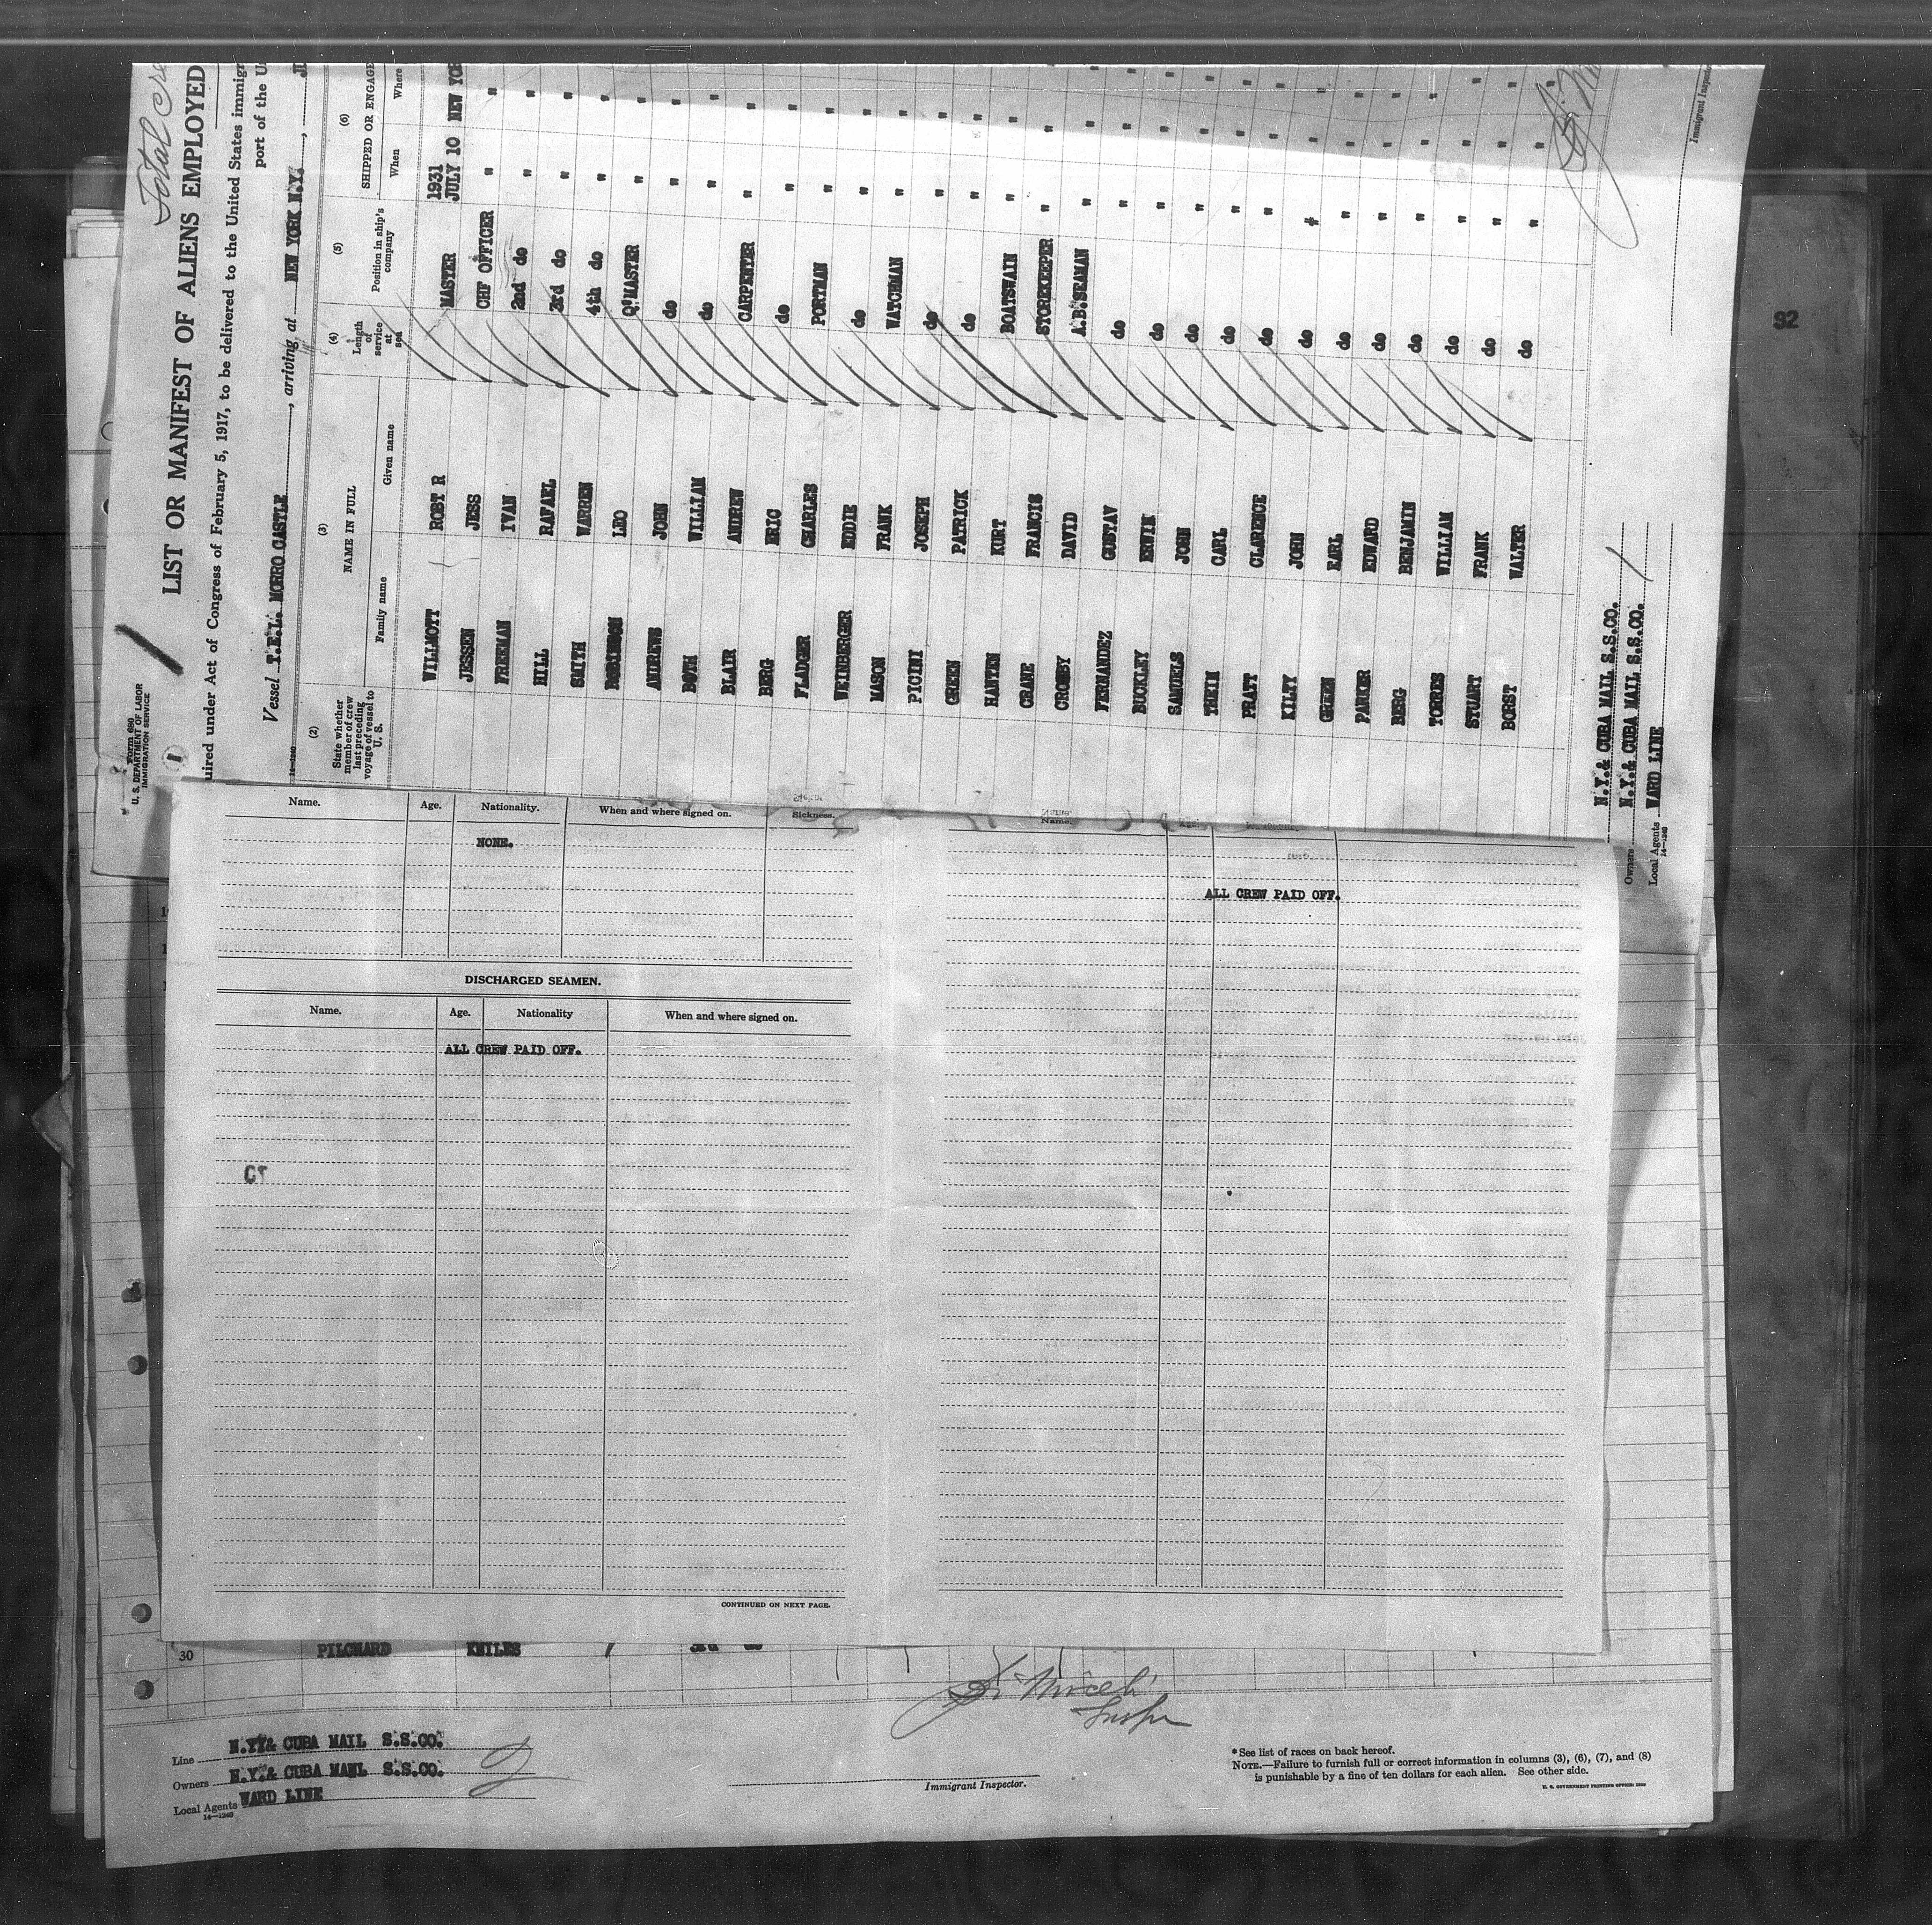 Form 680
U. S. DEPARTMENT OF LABOR
IMMIGRATION SERVICE
1
Total
LIST OR MANIFEST OF ALIENS EMPLOYED
uired under Act of Congress of February 5, 1917, to be delivered to the United States immigr
port of the U
Vessel T.E.L. MORRO CASTLE, arriving at NEW YORK N.Y.,
14-1240
(2) (3) (4) (5) (6)
State whether member of crew last preceding voyage of vessel to U. S.
NAME IN FULL
Family name Given name
Length of service at sea
Position in ship's company
SHIPPED OR ENGAGE
When Where
WILLMOTT ROBT R MASTER 1931 JULY 10 NEW YOR
JESSEN JESS CHF OFFICER " "
FREEMAN IVAN 2nd do " "
HILL RAFAEL 3rd do " "
SMITH WARREN 4th do " "
ROBINSON LEO Q'MASTER " "
ANDREWS JOHN do " "
BOTH WILLIAM do " "
BLAIR ANDREW CARPENTER " "
BERG ERIC do " "
FLADGER CHARLES PORTMAN " "
WEINBERGER EDDIE do " "
MASON FRANK WATCHMAN " "
PICINI JOSEPH do " "
GREEN PATRICK do " "
HANTEN KURT BOATSWAIN " "
CRANE FRANCIS STOREKEEPER " "
CROMBY DAVID A.B.SEAMAN " "
FERNANDEZ GUSTAV do " "
BUCKLEY ERWIN do " "
SAMUELS JOHN do " "
THEIM CARL do " "
PRATT CLARENCE do " "
KILTY JOHN do " "
GREEN EARL do " "
PARKER EDWARD do " "
BERG BENJAMIN do " "
TORRES WILLIAM do " "
STUART FRANK do " "
BORST WALTER do " "
N.Y.& CUBA MAIL S.S.CO.
Owners N.Y.& CUBA MAIL S.S.CO.
Local Agents WARD LINE
14-1240
Immigrant Inspector
92
Name. Age. Nationality. When and where signed on. Sickness.
NONE.
DISCHARGED SEAMEN.
Name. Age. Nationality When and where signed on.
ALL CREW PAID OFF.
CONTINUED ON NEXT PAGE.
Name.
ALL CREW PAID OFF.
30 PILCHARD KNILES
Line N.Y.& CUBA MAIL S.S.CO.
Owners N.Y.& CUBA MAIL S.S.CO.
Local Agents WARD LINE
14-1240
2
Immigrant Inspector.
* See list of races on back hereof.
NOTE.—Failure to furnish full or correct information in columns (3), (6), (7), and (8)
is punishable by a fine of ten dollars for each alien. See other side.